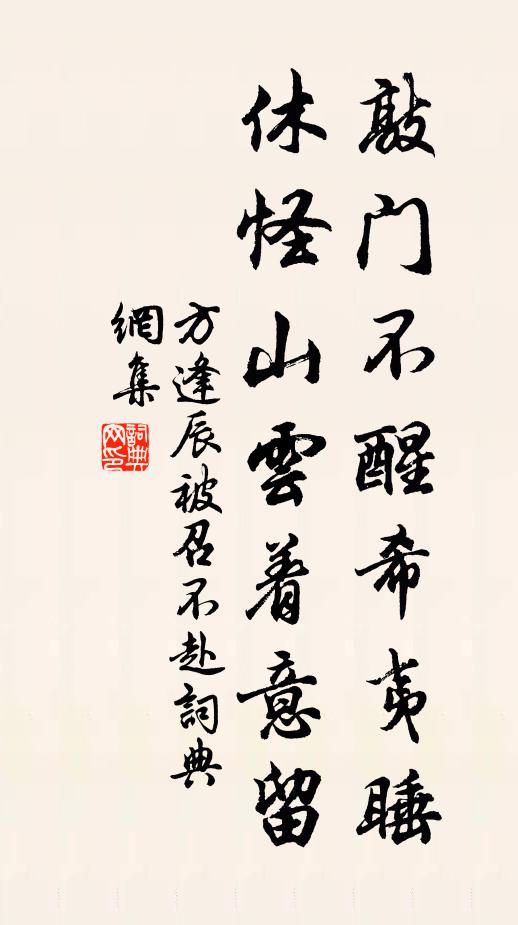 敲門不醒希夷睡
休怪山雲着意留
方逢辰被召不赴詞典
網集
詞典網印